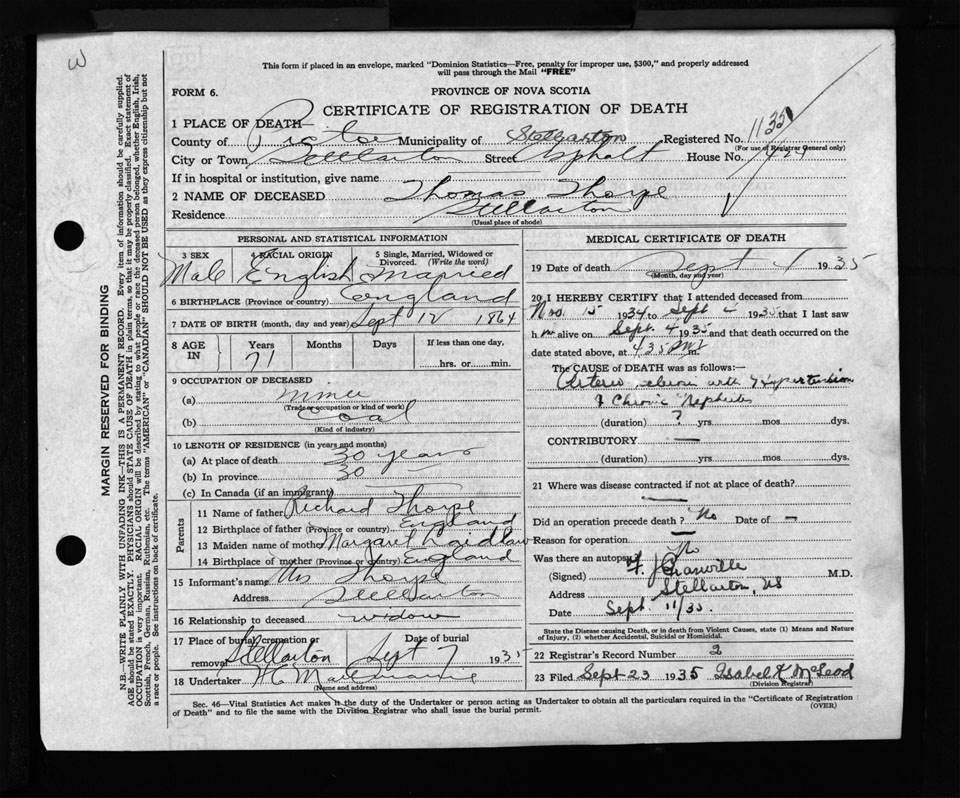 W
This form if placed in an envelope, marked "Dominion Statistics—Free, penalty for improper use, $300," and properly addressed
will pass through the Mail "FREE"
FORM 6. PROVINCE OF NOVA SCOTIA
CERTIFICATE OF REGISTRATION OF DEATH
1 PLACE OF DEATH—
County of Pictou Municipality of Stellarton Registered No. 1135
(For use of Registrar General only)
City or Town Stellarton Street Asphalt House No. 424
If in hospital or institution, give name
2 NAME OF DECEASED Thomas Thorpe
Residence Stellarton
(Usual place of abode)
PERSONAL AND STATISTICAL INFORMATION
3 SEX 4 RACIAL ORIGIN 5 Single, Married, Widowed or Divorced. (Write the word)
Male English Married
6 BIRTHPLACE (Province or country) England
7 DATE OF BIRTH (month, day and year) Sept 12 1864
8 AGE IN Years Months Days If less than one day,
71 hrs. or min.
9 OCCUPATION OF DECEASED
(a) miner
(Trade or occupation or kind of work)
(b) Coal
(Kind of industry)
10 LENGTH OF RESIDENCE (in years and months)
(a) At place of death 30 years
(b) In province 30
(c) In Canada (if an immigrant)
Parents
11 Name of father Richard Thorpe
12 Birthplace of father (Province or country) England
13 Maiden name of mother Margaret Laidlaw
14 Birthplace of mother (Province or country) England
15 Informant's name Mrs Thorpe
Address Stellarton
16 Relationship to deceased widow
17 Place of burial, cremation or removal Stellarton Date of burial Sept 7 1935
18 Undertaker
(Name and address)
MEDICAL CERTIFICATE OF DEATH
19 Date of death Sept 4 1935
(Month, day and year)
20 I HEREBY CERTIFY that I attended deceased from
Nov. 15 1934 to Sept 1935 that I last saw
h m alive on Sept. 4 1935 and that death occurred on the
date stated above, at 4 35 m.
The CAUSE OF DEATH was as follows:—
Arterio sclerosis with Hypertension
& Chronic Nephritis
(duration) ? yrs. mos. dys.
CONTRIBUTORY —
(duration) yrs. mos. dys.
21 Where was disease contracted if not at place of death?
—
Did an operation precede death? No Date of —
Reason for operation —
Was there an autopsy? No
(Signed) Granville M.D.
Address Stellarton, NS
Date Sept. 11/35.
State the Disease causing Death, or in death from Violent Causes, state (1) Means and Nature
of Injury, (2) whether Accidental, Suicidal or Homicidal.
22 Registrar's Record Number 2
23 Filed Sept 23 1935 Isabel K McLeod
(Division Registrar)
Sec. 46—Vital Statistics Act makes it the duty of the Undertaker or person acting as Undertaker to obtain all the particulars required in the "Certificate of Registration
of Death" and to file the same with the Division Registrar who shall issue the burial permit. (OVER)
MARGIN RESERVED FOR BINDING
N.B.—WRITE PLAINLY WITH UNFADING INK—THIS IS A PERMANENT RECORD. Every item of information should be carefully supplied.
AGE should be stated EXACTLY. PHYSICIANS should STATE CAUSE OF DEATH in plain terms, so that it may be properly classified. Exact statement of
OCCUPATION is very important. RACIAL ORIGIN will be described by stating to what people or race the deceased person belonged, whether English, Irish,
Scottish, French, German, Russian, Ruthenian, etc. The terms "AMERICAN" or "CANADIAN" SHOULD NOT BE USED as they express citizenship but not
a race or people. See instructions on back of certificate.